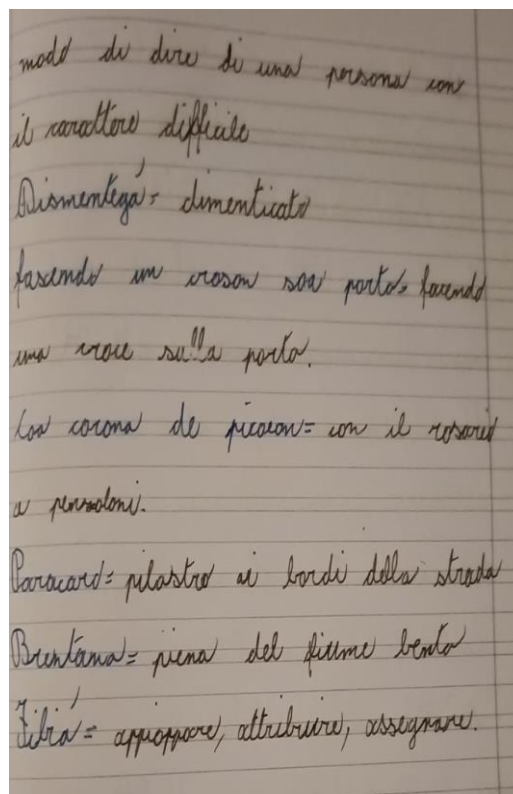 modo di dire di una persona con
il carattere difficile
Dismentegá = dimenticato
fasendo un croson soa porto = facendo
una croce sulla porta.
Coa corona de picocon = con il rosario
a penzoloni.
Paracard = pilastro ai bordi della strada
Brentana = piena del fiume benta
Zibiá = appioppare, attribuire, assegnare.